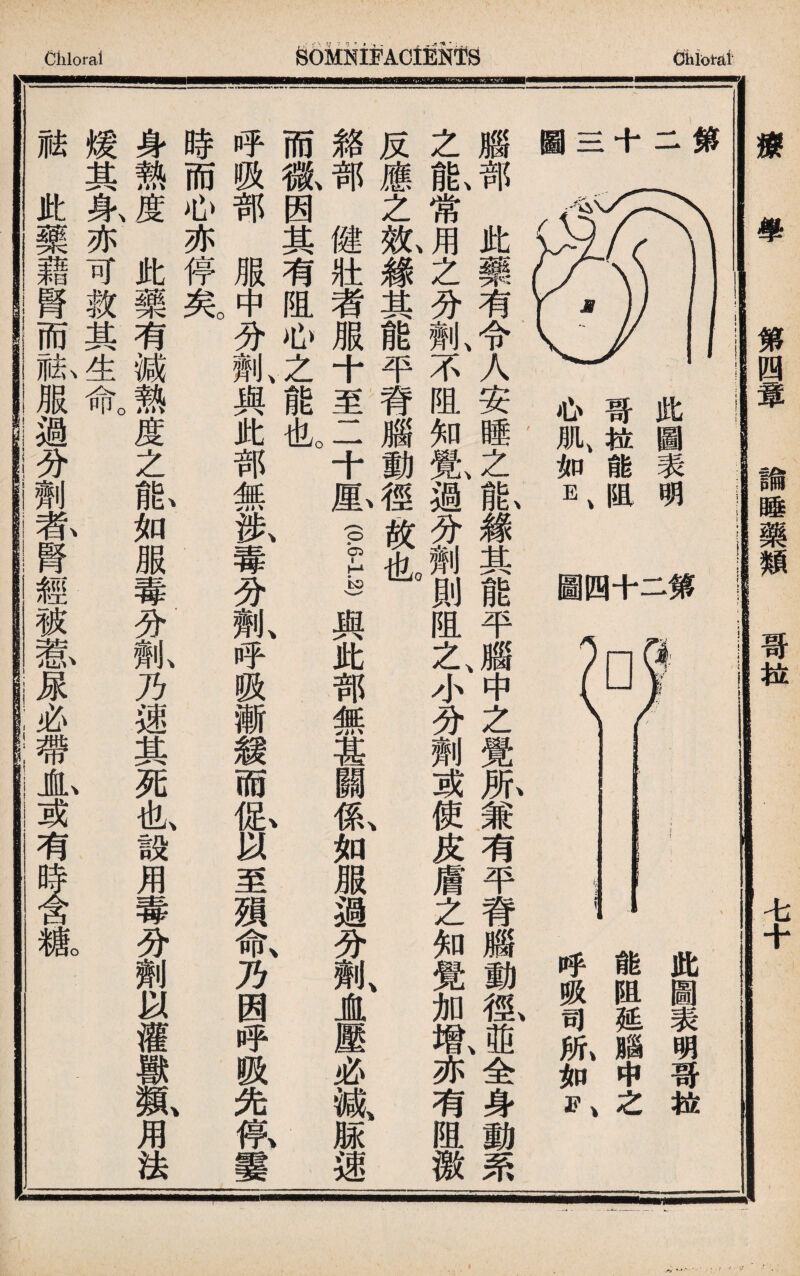 Chloral
SOMNIFACIENTS
Chloral
療學 第四章 論睡藥類 哥拉 七十
第二十三圖
此圖表明
哥拉能阻
心肌、如E、
第二十四圖
此圖表明哥拉
能阻延腦中之
呼吸司所、如F、
腦部 此藥有令人安睡之能、緣其能平腦中之覺所、兼有平脊腦動徑、並全身動系
之能、常用之分劑、不阻知覺、過分劑則阻之、小分劑或使皮膚之知覺加增、亦有阻激
反應之效、緣其能平脊腦動徑故也。
絡部 健壯者服十至二十厘、(0.6-1.2)與此部無甚關係、如服過分劑、血壓必減、脉速
而微、因其有阻心之能也。
呼吸部 服中分劑、與此部無涉、毒分劑、呼吸漸緩而促、以至殞命、乃因呼吸先停、霎
時而心亦停矣。
身熱度 此藥有減熱度之能、如服毒分劑、乃速其死也、設用毒分劑以灌獸類、用法
煖其身、亦可救其生命。
祛 此藥藉腎而祛、服過分劑者、腎經被惹、尿必帶血、或有時含糖。